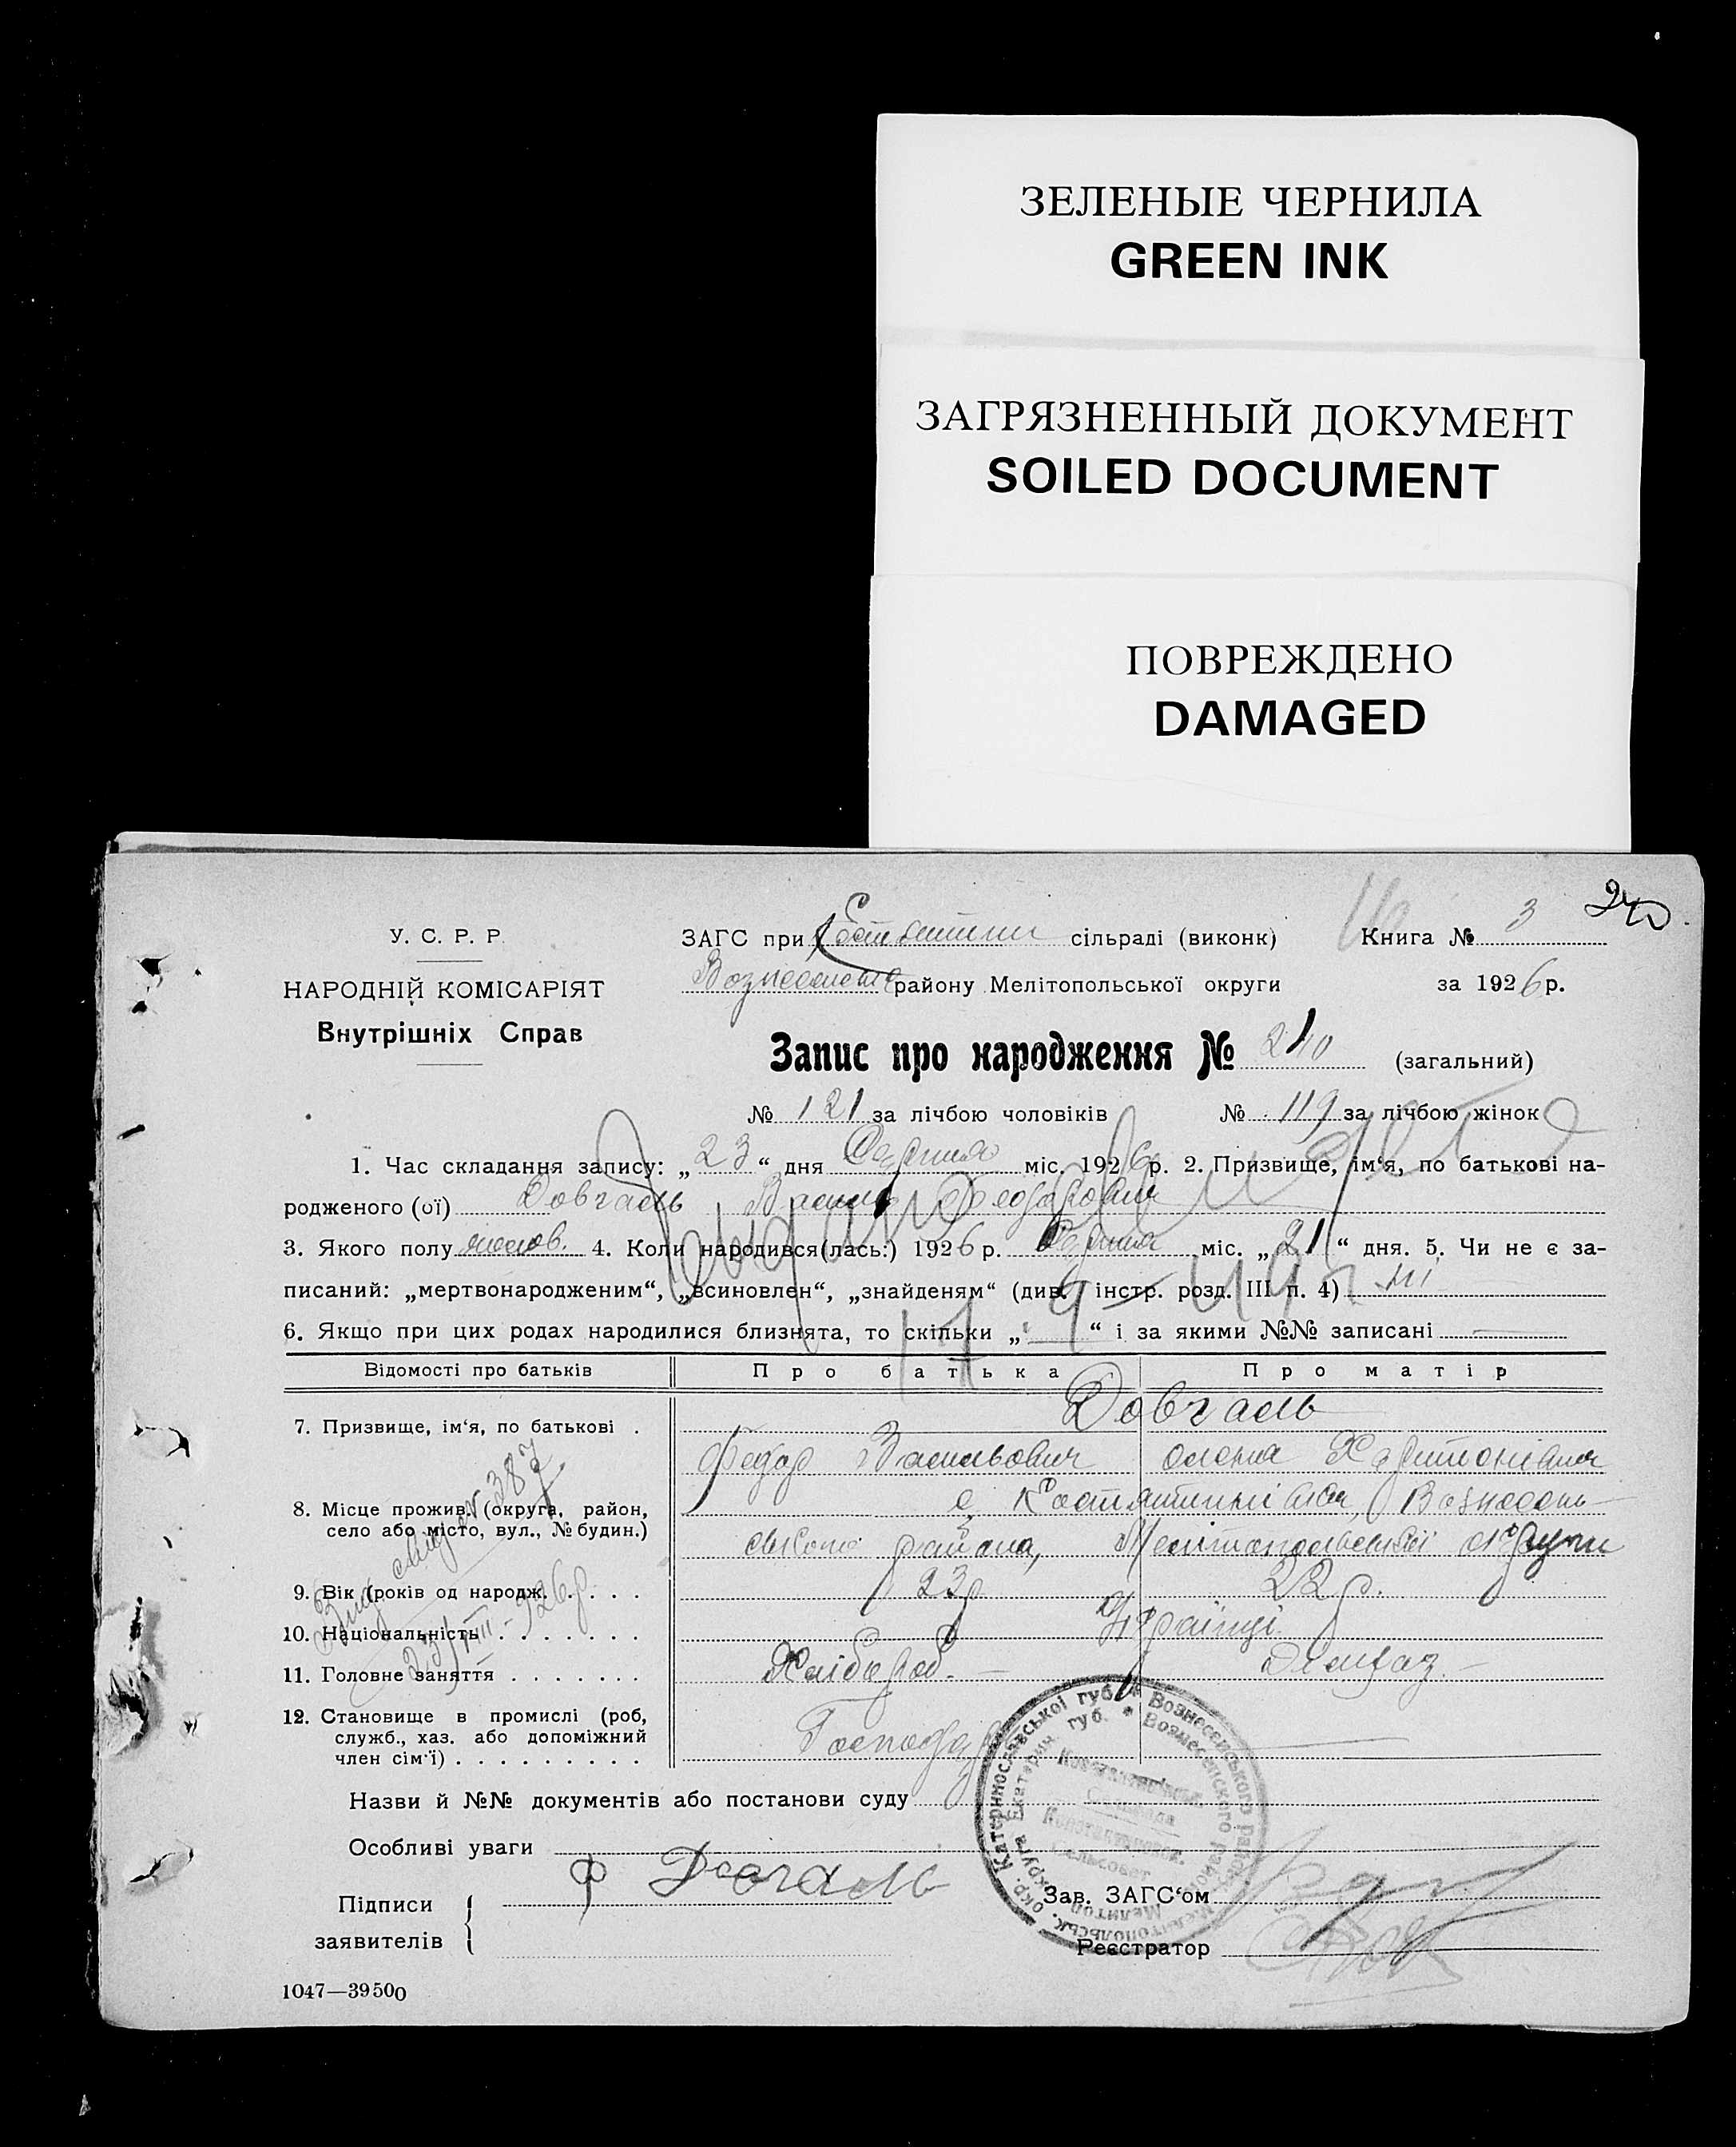 ЗЕЛЕНЫЕ ЧЕРНИЛА
GREEN INK
ЗАГРЯЗНЕННЫЙ ДОКУМЕНТ
SOILED DOCUMENT
ПОВРЕЖДЕНО
DAMAGED
У. С. Р. Р.
НАРОДНІЙ КОМІСАРІЯТ
Внутрішніх Справ
ЗАГС при сільраді (виконк) Книга № 3
району Мелітопольської округи за 1926 р.
Запис про народження № 240 (загальний)
№ 121 за лічбою чоловіків № 119 за лічбою жінок
1. Час складання запису: „23“ дня Серпня міс. 1926 р. 2. Призвище, ім‘я, по батькові на-
родженого (ої) Довгаль Василь Федорович
3. Якого полу 4. Коли народився(лась:) 1926 р. Серпня міс. „21“ дня. 5. Чи не є за-
писаний: „мертвонародженим“, „всиновлен“, „знайденям“ (див. інстр. розд. III п. 4) ні
6. Якщо при цих родах народилися близнята, то скільки „ “ і за якими №№ записані
Відомості про батьків Про батька Про матір
7. Призвище, ім‘я, по батькові . Довгаль
Федор Васильович Олена Харитонівна
8. Місце прожив. (округа, район, с. Костянтинівка, Вознесень-
село або місто, вул., № будин.) ського района, Мелітопольської округи
9. Вік (років од народж. . . . . 23 р 22 р.
10. Національність . . . . . . . Українці
11. Головне заняття . . . . . . . Хлібороб.
12. Становище в промислі (роб, Господар
служб., хаз. або допоміжний
член сім‘ї) . . . . . . . . .
Назви й №№ документів або постанови суду
Особливі уваги
Підписи Ф Довгаль Зав. ЗАГС‘ом
заявителів Реєстратор
1047—39500